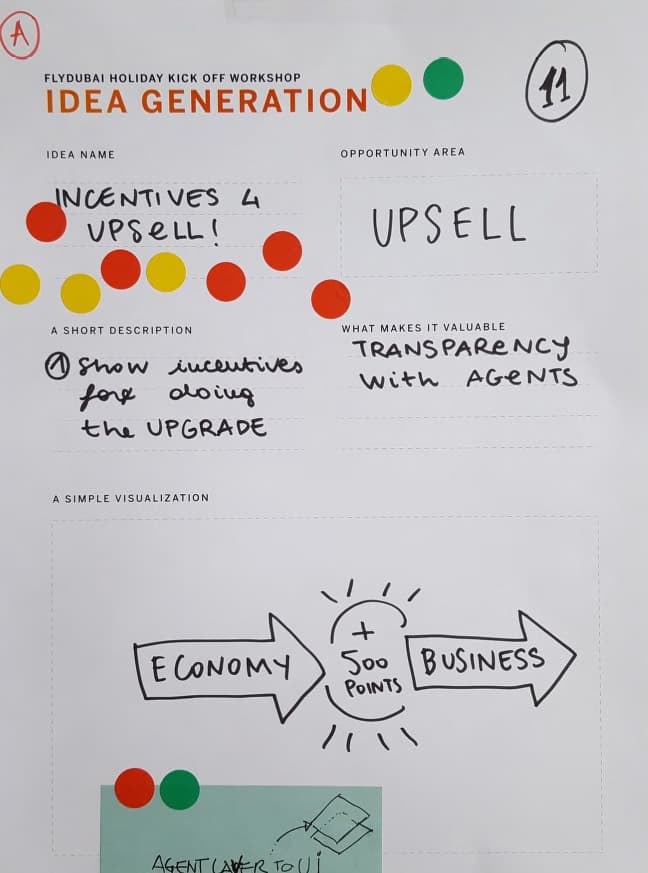 A
FLYDUBAI HOLIDAY KICK OFF WORKSHOP
IDEA GENERATION
11
IDEA NAME
INCENTIVES 4
UPSELL!
OPPORTUNITY AREA
UPSELL
A SHORT DESCRIPTION
1 Show incentives
for doing
the UPGRADE
WHAT MAKES IT VALUABLE
TRANSPARENCY
With AGENTS
A SIMPLE VISUALIZATION
ECONOMY
+
500
POINTS
BUSINESS
AGENT LAYER TO UI